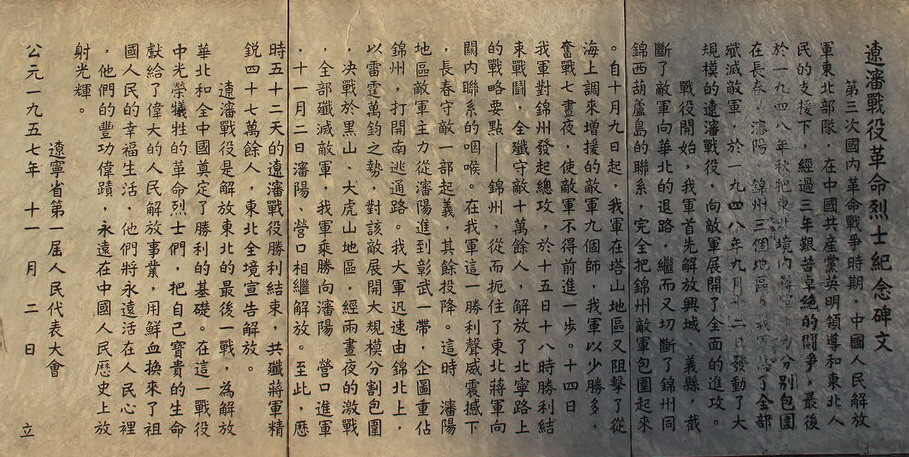 遼瀋戰役革命烈士紀念碑文
第三次國內革命戰爭時期，中國人民解放
軍東北部隊，在中國共產黨英明領導和東北人
民的支援下，經過三年艱苦卓絕的鬥爭，最後
於一九四八年秋把東北境內蔣軍分別包圍
在長春、瀋陽、錦州三個地區。我軍為了全部
殲滅敵軍，於一九四八年九月十二日發動了大
規模的遼瀋戰役，向敵軍展開了全面的進攻。
戰役開始，我軍首先解放興城、義縣，截
斷了敵軍向華北的退路，繼而又切斷了錦州同
錦西葫蘆島的聯系，完全把錦州敵軍包圍起來
。自十月九日起，我軍在塔山地區又阻擊了從
海上調來增援的敵軍九個師，我軍以少勝多，
奮戰七晝夜，使敵軍不得前進一步。十四日
我軍對錦州發起總攻，於十五日十八時勝利結
束戰鬥，全殲守敵十萬餘人，解放了北寧路上
的戰略要點——錦州，從而扼住了東北蔣軍向
關內聯系的咽喉。在我軍這一勝利聲威震撼下
，長春守敵一部起義，其餘投降。這時，瀋陽
地區敵軍主力從瀋陽進到彰武一帶，企圖重佔
錦州，打開南逃通路。我大軍迅速由錦北上，
以雷霆萬鈞之勢，對該敵展開大規模分割包圍
，決戰於黑山、大虎山地區，經兩晝夜的激戰
，全部殲滅敵軍，我軍乘勝向瀋陽、營口進軍
，十一月二日瀋陽、營口相繼解放。至此，歷
時五十二天的遼瀋戰役勝利結束，共殲蔣軍精
銳四十七萬餘人，東北全境宣告解放。
遼瀋戰役是解放東北的最後一戰，為解放
華北和全中國奠定了勝利的基礎。在這一戰役
中光榮犧牲的革命烈士們，把自己寶貴的生命
獻給了偉大的人民解放事業，用鮮血換來了祖
國人民的幸福生活，他們將永遠活在人民心裡
，他們的豐功偉蹟，永遠在中國人民歷史上放
射光輝。
遼寧省第一屆人民代表大會
公元一九五七年十一月二日 立